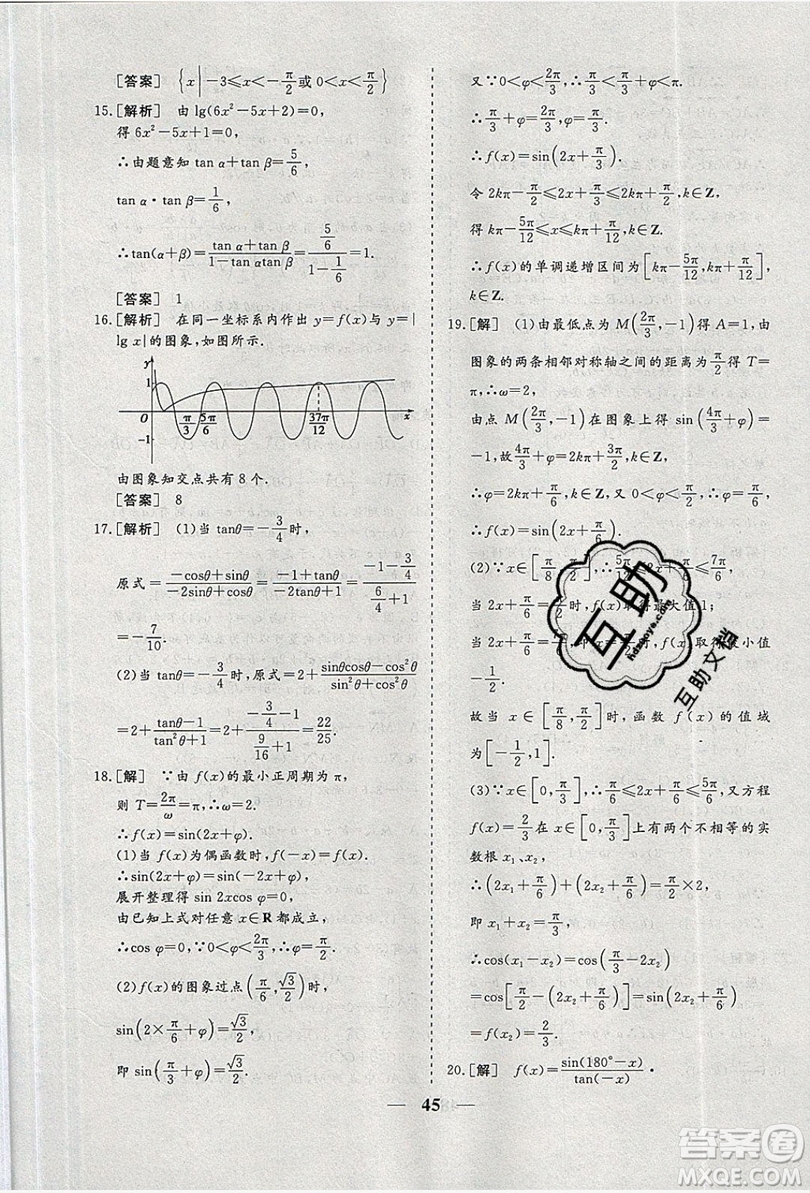 [答案] {x|-3≤x<-π/2或0<x<π/2}
15.[解析] 由 lg(6x²-5x+2)=0,
得 6x²-5x+1=0,
∴由题意知 tan α+tan β=5/6,
tan α·tan β=1/6,
∴tan(α+β)=(tan α+tan β)/(1-tan αtan β)=(5/6)/(1-1/6)=1.
[答案] 1
16.[解析] 在同一坐标系内作出 y=f(x)与 y=|
lg x|的图象,如图所示.
y
1
O π/3 5π/6 37π/12 x
-1
由图象知交点共有 8 个.
[答案] 8
17.[解析] (1)当 tanθ=-3/4时,
原式=(-cosθ+sinθ)/(-2sinθ+cosθ)=(-1+tanθ)/(-2tanθ+1)=(-1-3/4)/(6/4+1)
=-7/10.
(2)当 tanθ=-3/4时,原式=2+(sinθcosθ-cos²θ)/(sin²θ+cos²θ)
=2+(tanθ-1)/(tan²θ+1)=2+(-3/4-1)/(9/16+1)=22/25.
18.[解] ∵由 f(x)的最小正周期为 π,
则 T=2π/ω=π,∴ω=2.
∴f(x)=sin(2x+φ).
(1)当 f(x)为偶函数时,f(-x)=f(x).
∴sin(2x+φ)=sin(-2x+φ),
展开整理得 sin 2xcos φ=0,
由已知上式对任意 x∈R 都成立,
∴cos φ=0.∵0<φ<2π/3,∴φ=π/2.
(2)f(x)的图象过点(π/6,√3/2)时,
sin(2×π/6+φ)=√3/2,
即 sin(π/3+φ)=√3/2.
又∵0<φ<2π/3,∴π/3<π/3+φ<π.
∴π/3+φ=2π/3,φ=π/3.
∴f(x)=sin(2x+π/3).
令 2kπ-π/2≤2x+π/3≤2kπ+π/2,k∈Z,
得 kπ-5π/12≤x≤kπ+π/12,k∈Z.
∴f(x)的单调递增区间为[kπ-5π/12,kπ+π/12],
k∈Z.
19.[解] (1)由最低点为 M(2π/3,-1)得 A=1,由
图象的两条相邻对称轴之间的距离为π/2得 T=
π,∴ω=2,
由点 M(2π/3,-1)在图象上得 sin(4π/3+φ)=
-1,故4π/3+φ=2kπ-π/2,k∈Z,
∴φ=2kπ-11π/6,又 φ∈(0,π/2),∴φ=π/6,
∴f(x)=sin(2x+π/6).
(2)∵x∈[π/8,π/2],∴5π/12≤2x+π/6≤7π/6,
当 2x+π/6=π/2时,f(x)取得最大值 1;
当 2x+π/6=7π/6时,f(x)取得最小值
-1/2.
故当 x∈[π/8,π/2]时,函数 f(x)的值域
为[-1/2,1].
(3)∵x∈[0,π/3],∴π/6≤2x+π/6≤5π/6,又方程
f(x)=2/3在 x∈[0,π/3]上有两个不相等的实
数根 x₁、x₂,
∴(2x₁+π/6)+(2x₂+π/6)=π/2×2,
即 x₁+x₂=π/3,
∴cos(x₁-x₂)=cos(π/3-2x₂)
=cos[π/2-(2x₂+π/6)]=sin(2x₂+π/6)
=f(x₂)=2/3.
20.[解] f(x)=sin(180°-x)/tan(-x)·
45
互助
hdzuoye.com
互助文档
答案圈
MXQE.COM